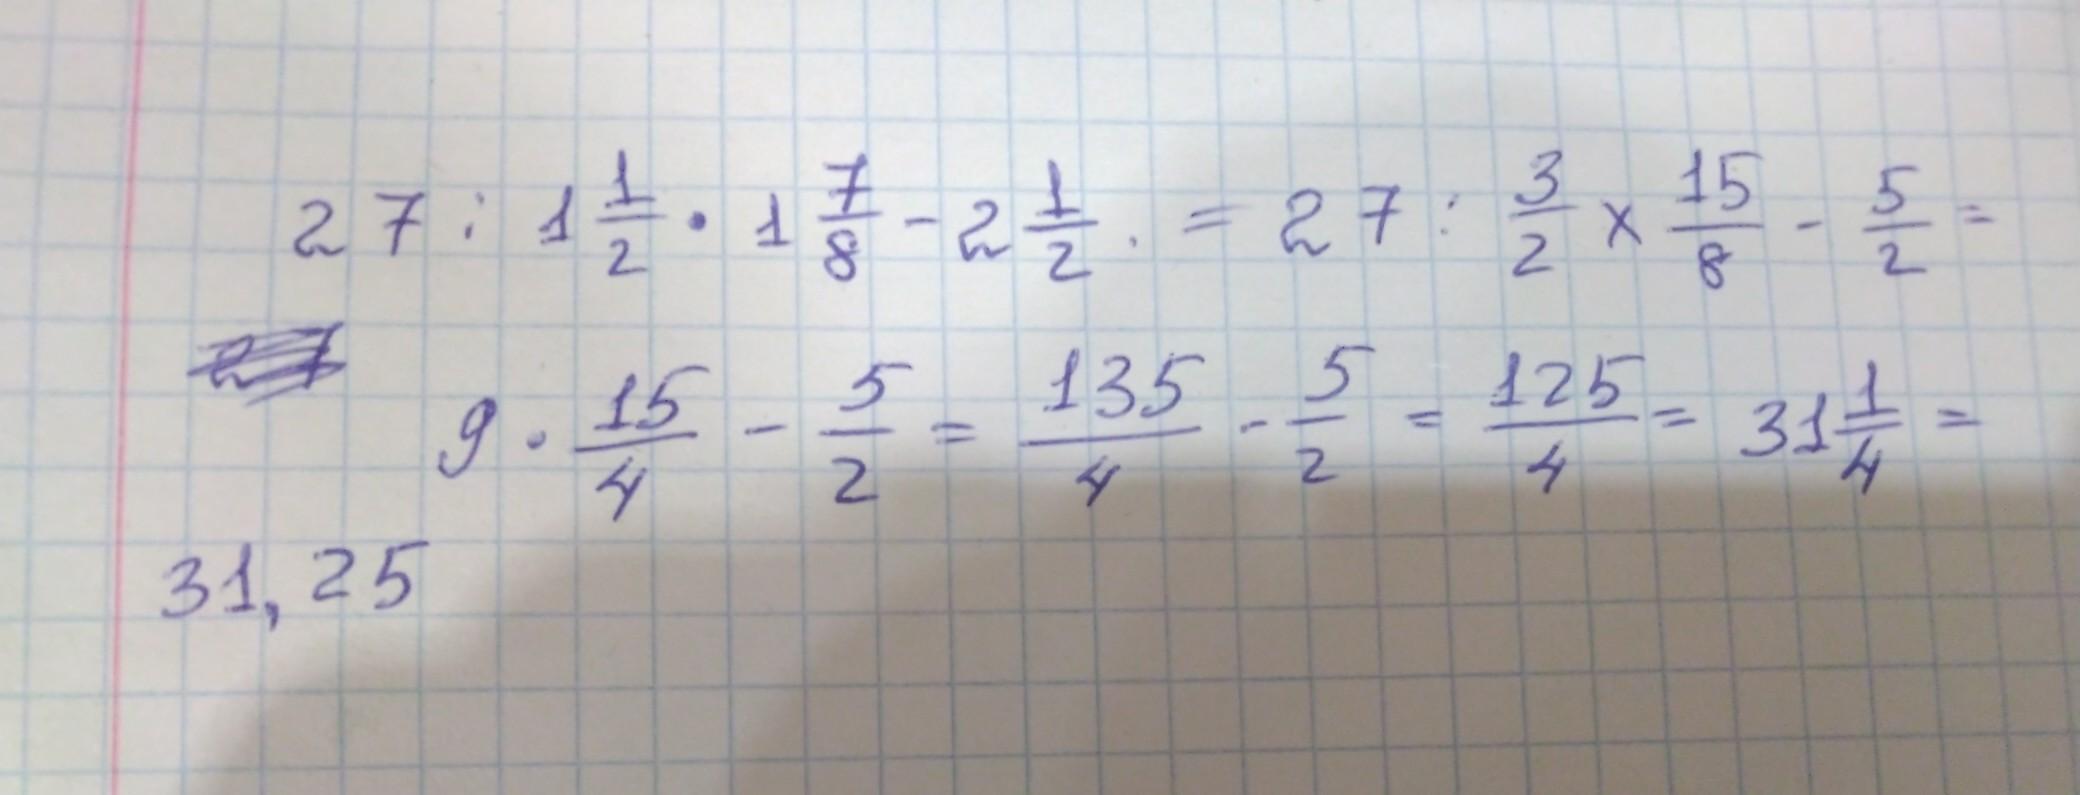 27 : 1 1/2 · 1 7/8 - 2 1/2 . = 27 : 3/2 x 15/8 - 5/2 =
9 · 15/4 - 5/2 = 135/4 - 5/2 = 125/4 = 31 1/4 =
31,25